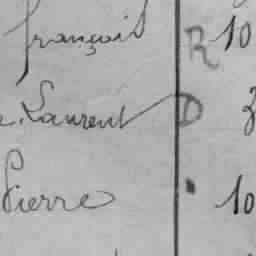 françois R 10
Laurent D 3
Pierre 10